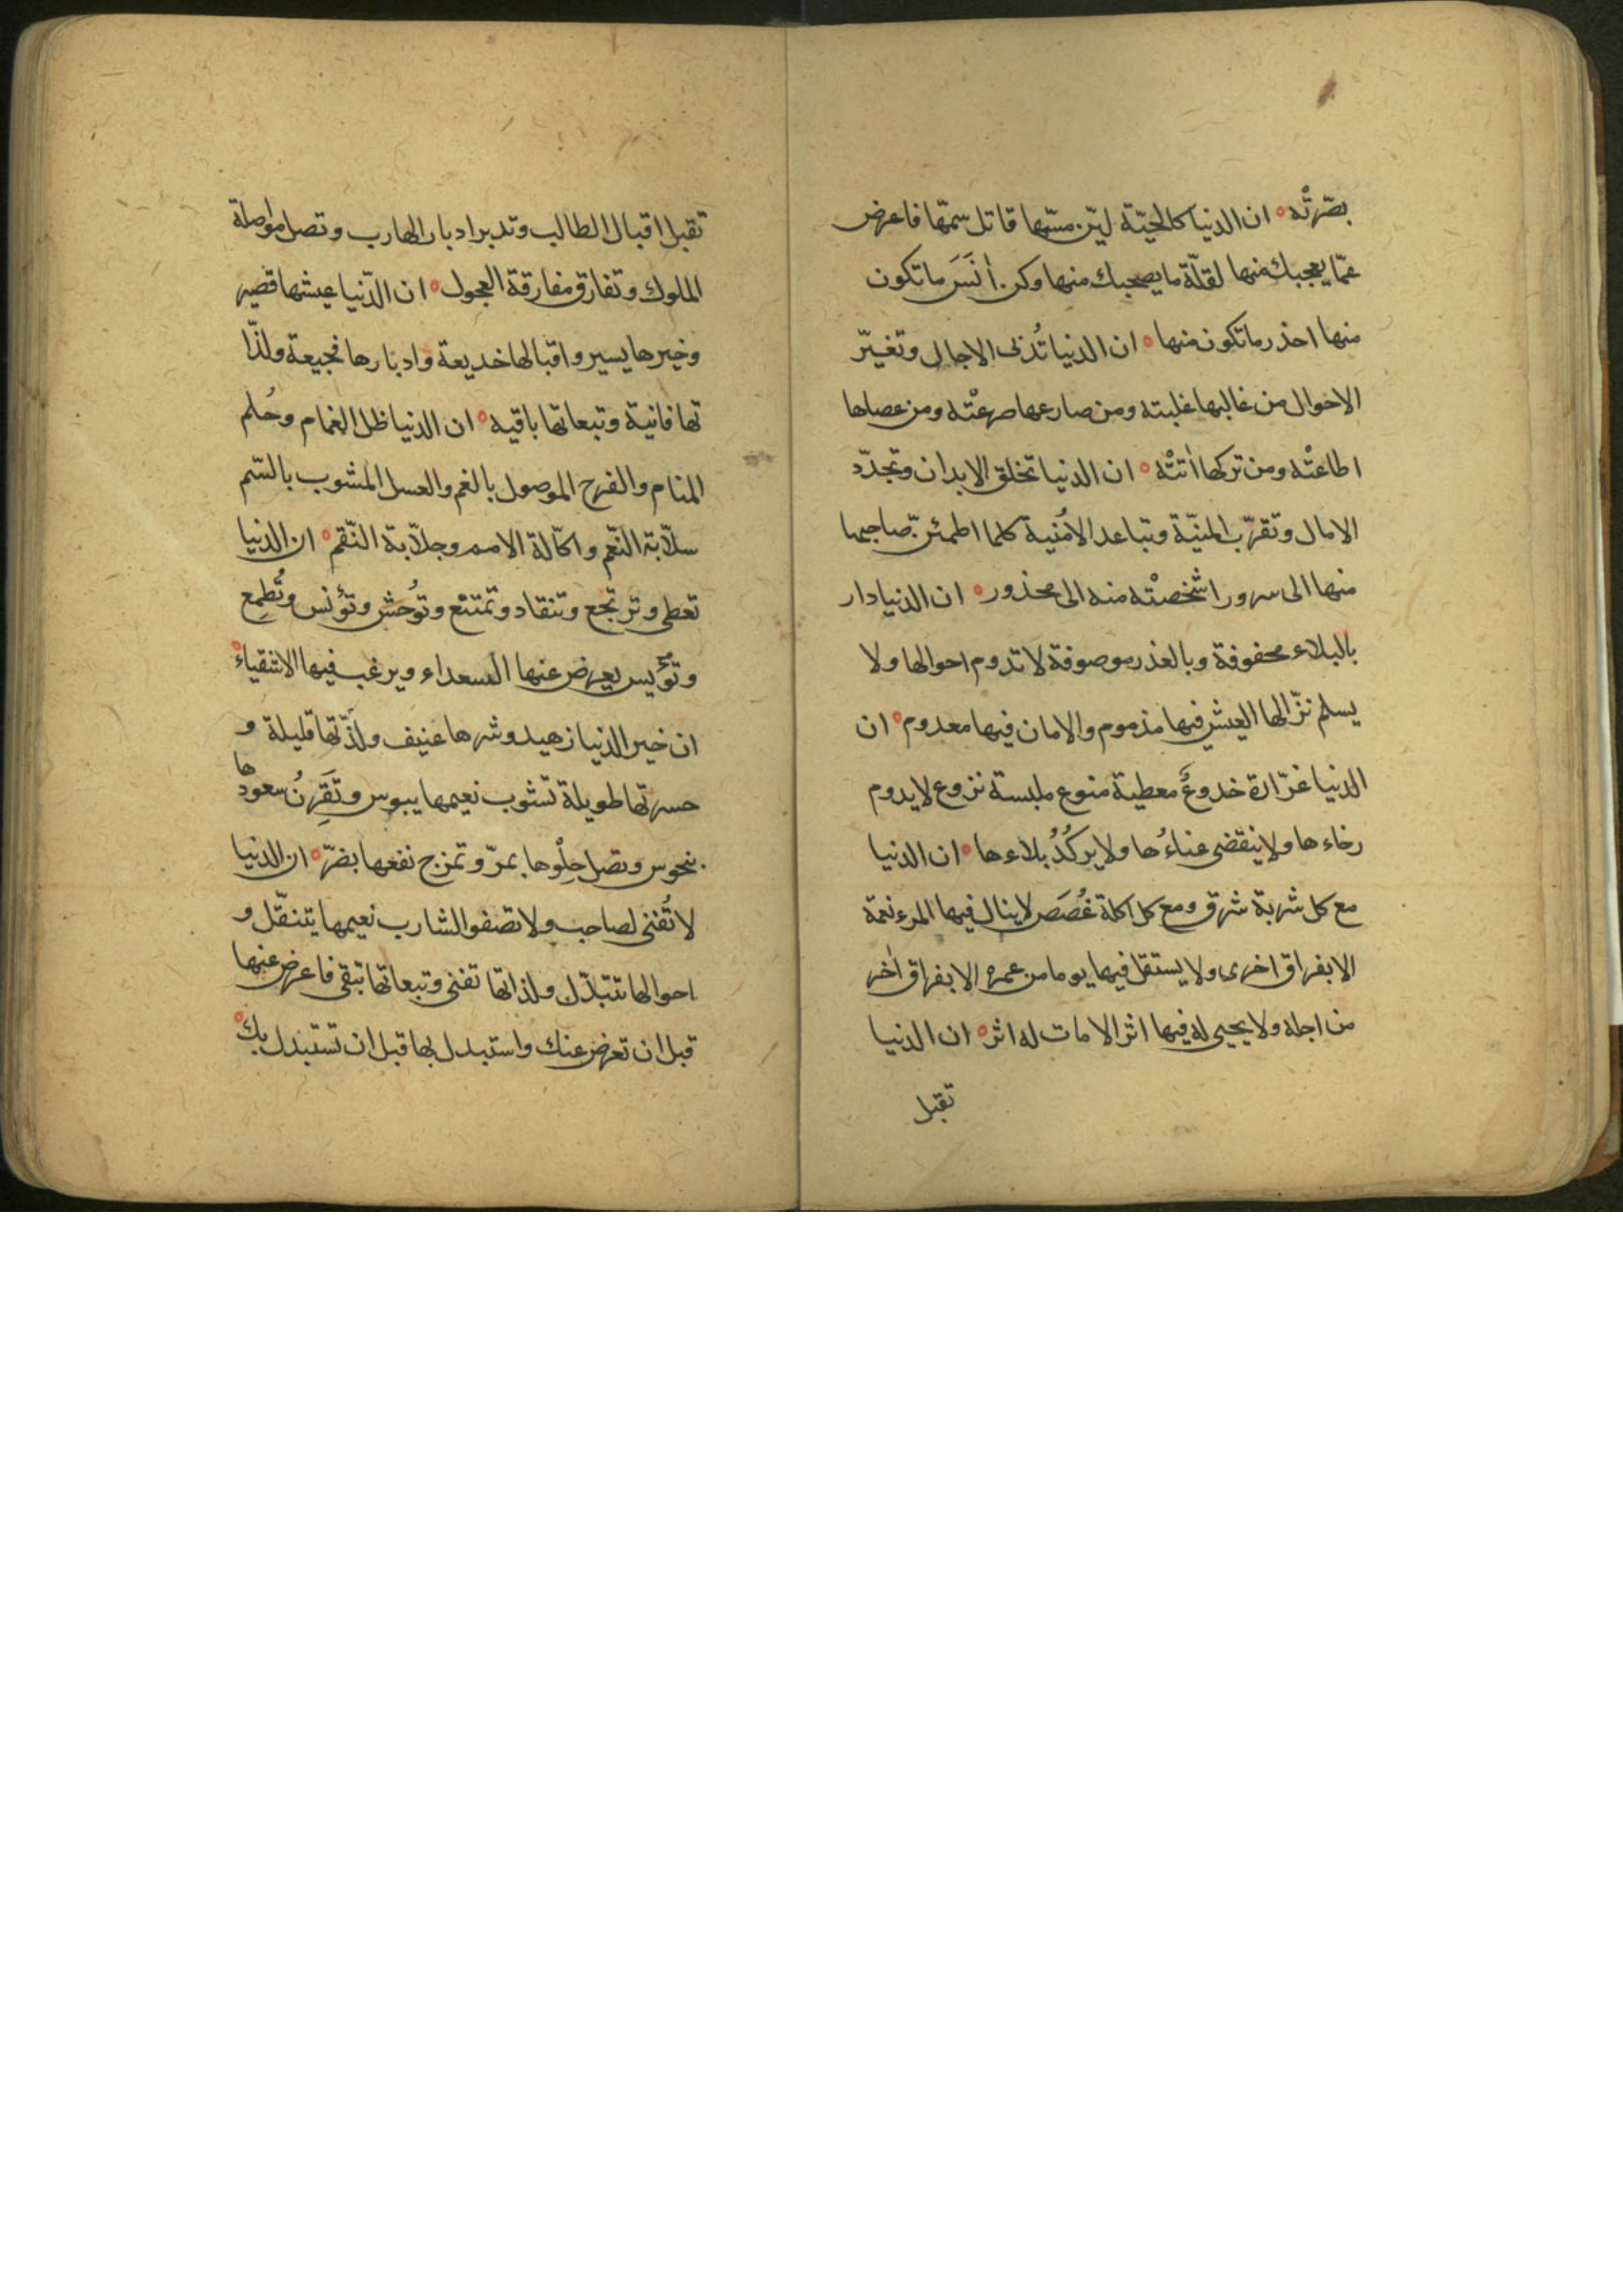 بصّرتْه ان الدنيا كالحيّة ليّن مسّها قاتل سمّها فاعرض
عمّا يعجبك منها لقلّة ما يصحبك منها وكن أنَسَ ما تكون
منها احذر ما تكون منها ان الدنيا تُدنى الاجال وتغيّر
الاحوال من غالبها غلبته ومن صارعها صرعتْه ومن عصاها
اطاعتْه ومن تركها اَتتْه ان الدنيا تخلق الابدان وتجدّد
الامال وتقرّب المنيّة وتباعد الاُمنية كلما اطمئنّ صاحبها
منها الى سرور اشْخصتْه منه الى محذور ان الدنيا دار
بالبلاء محفوفة وبالغدر موصوفة لا تدوم احوالها ولا
يسلم نزّالها العيش فيها مذموم والامان فيها معدوم ان
الدنيا غرّارة خدوعٌ معطية منوع ملبسة نزوع لا يدوم
رخاءها ولا ينقضى عناءُها ولا يركُدُ بلاءها ان الدنيا
مع كل شربة شرق ومع كل اكلة غُصَص لا ينال فيها المرء نعمة
الا بفراق اخرى ولا يستقل فيها يوما من عمره الا بفراق اٰخر
من اجله ولا يحيى له فيها اثر الا مات له اثر ان الدنيا
تقبل
تقبل اقبال الطالب وتدبر ادبار الهارب وتصل مواصلة
الملوك وتفارق مفارقة العجول ان الدّنيا عيشها قصير
وخيرها يسير واقبالها خديعة وادبارها فجيعة ولذّا
تها فانية وتبعاتها باقيه ان الدنيا ظل الغمام وحُلم
المنام والفرح الموصول بالغم والعسل المشوب بالسّم
سلاّبة النّعم واكّالة الامم وجلاّبة النّقم ان الدنيا
تعطى وترتجع وتنقاد وتمتنع وتُوحش وتؤنس وتُطمِع
وتؤيس يعرض عنها السعداء ويرغب فيها الاشقياء
ان خير الدنيا زهيد وشرها عنيف ولذّتها قليلة و
حسرتها طويلة تشوب نعيمها ببوس وتَقرِنُ سعودها
بنحوس وتصل حِلْوها بمرّ وتمزج نفعها بضرّ ان الدنيا
لا تُفنى لصاحب ولا تصفو لشارب نعيمها يتنقّل و
احوالها تتبدّل ولذاتها تفنى وتبعاتها تبقى فاعرض عنها
قبل ان تعرض عنك واستبدل بها قبل ان تستبدل بك